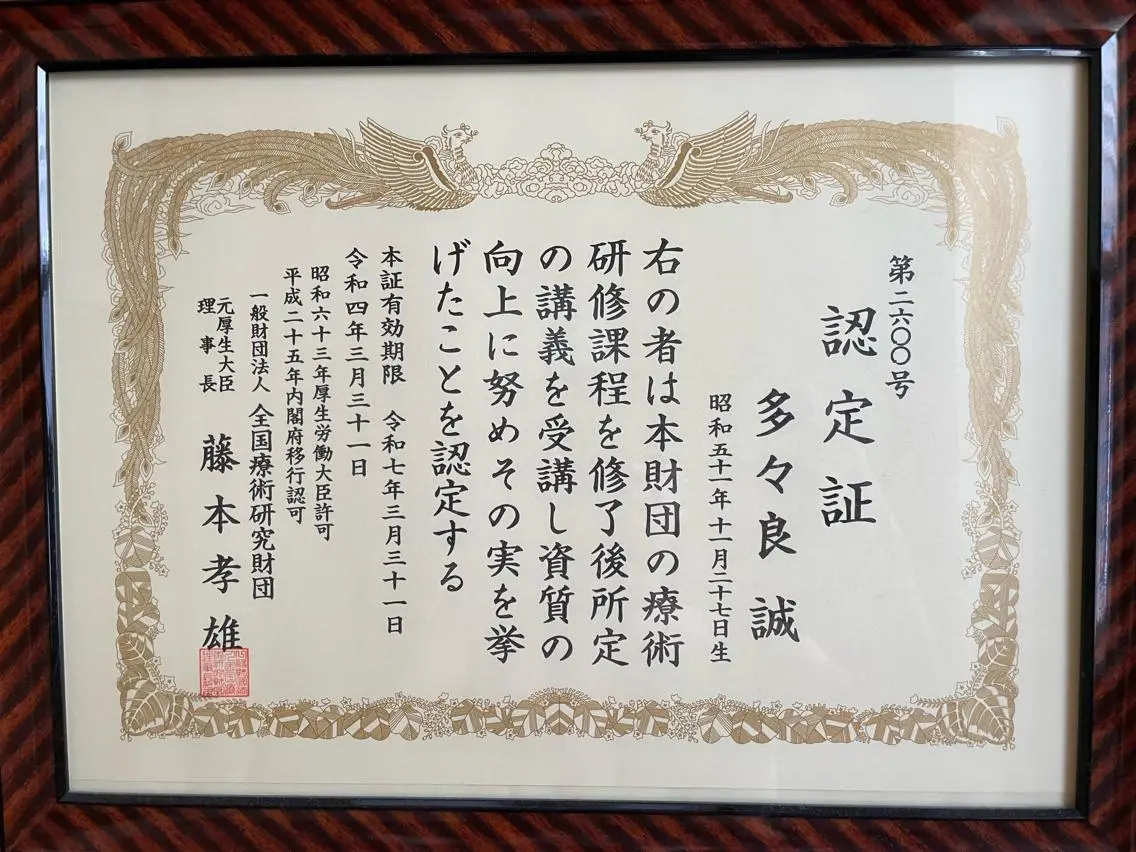 第二六〇〇号
認定証
多々良誠
昭和五十一年十一月二十七日生
右の者は本財団の療術
研修課程を修了後所定
の講義を受講し資質の
向上に努めその実を挙
げたことを認定する
本証有効期限 令和七年三月三十一日
令和四年三月三十一日
昭和六十三年厚生労働大臣許可
平成二十五年内閣府移行認可
一般財団法人 全国療術研究財団
元厚生大臣
理事長 藤本孝雄